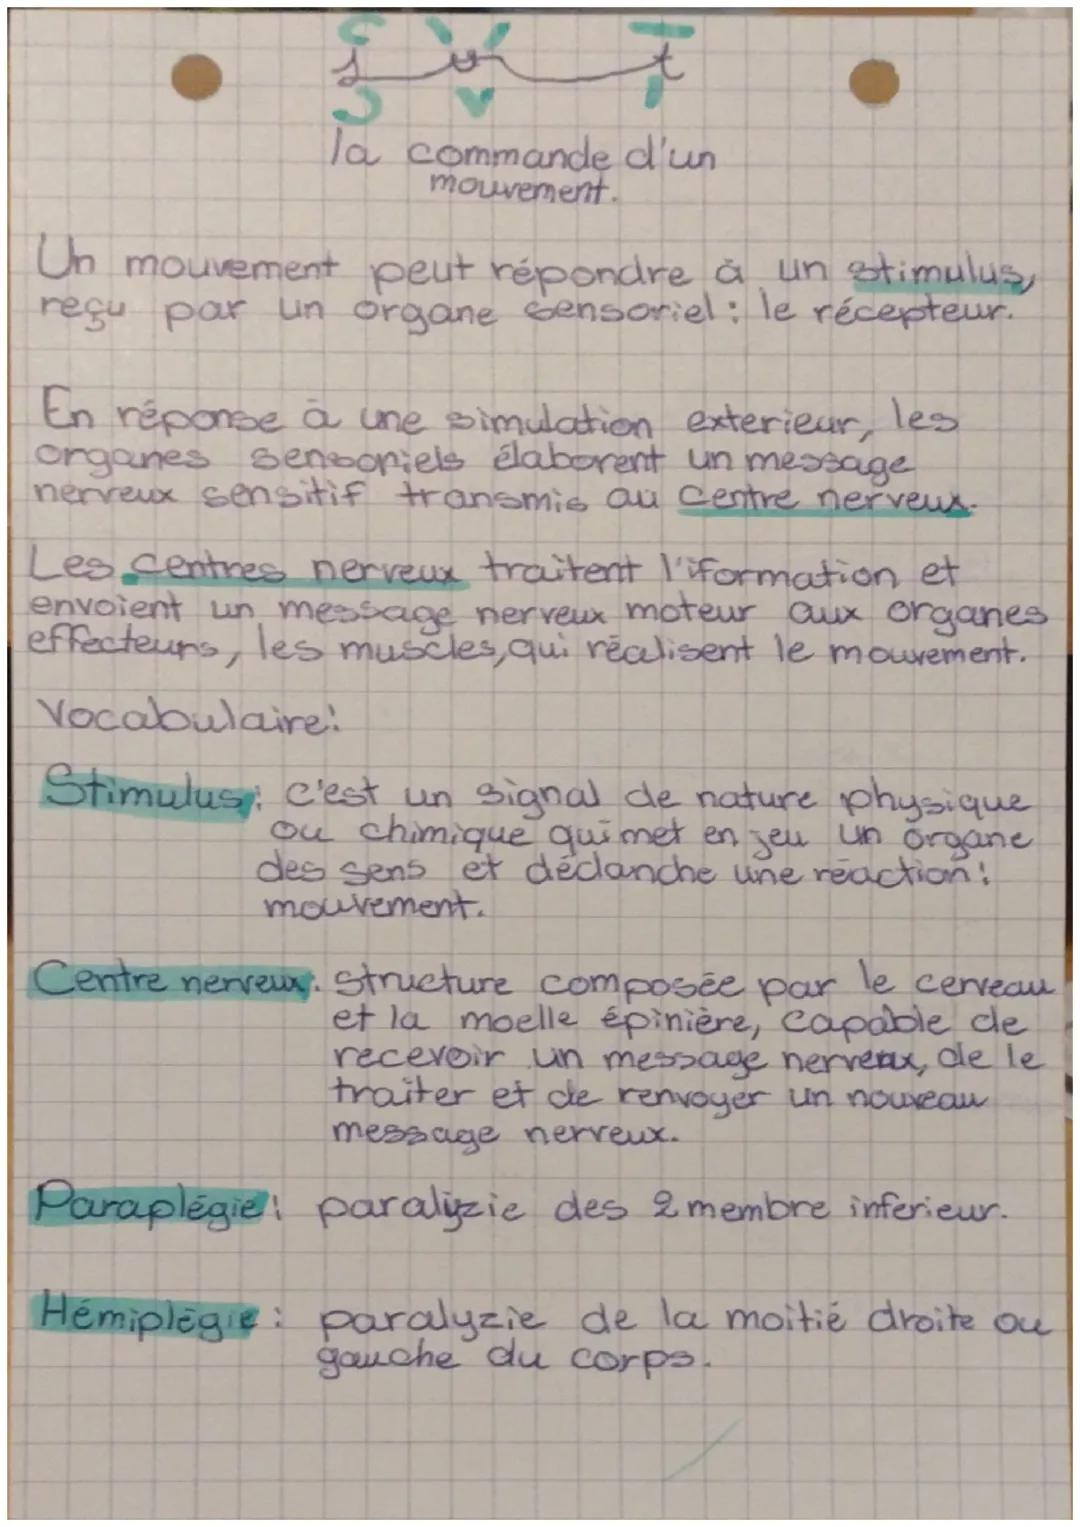 svt
la commande d'un
mouvement.
Un mouvement peut répondre à un stimulus,
reçu par un organe sensoriel : le récepteur.
En réponse à une simulation exterieur, les
organes sensoriels élaborent un message
nerveux sensitif transmis au centre nerveux.
Les centres nerveux traitent l'iformation et
envoient un message nerveux moteur aux organes
effecteurs, les muscles, qui réalisent le mouvement.
Vocabulaire:
Stimulus: c'est un signal de nature physique
ou chimique qui met en jeu un organe
des sens et déclanche une réaction:
mouvement.
Centre nerveux: structure composée par le cerveau
et la moelle épinière, capable de
recevoir un message nerveux, de le
traiter et de renvoyer un nouveau
message nerveux.
Paraplégie: paralyzie des 2 membre inferieur.
Hémiplégie : paralyzie de la moitié droite ou
gauche du corps.